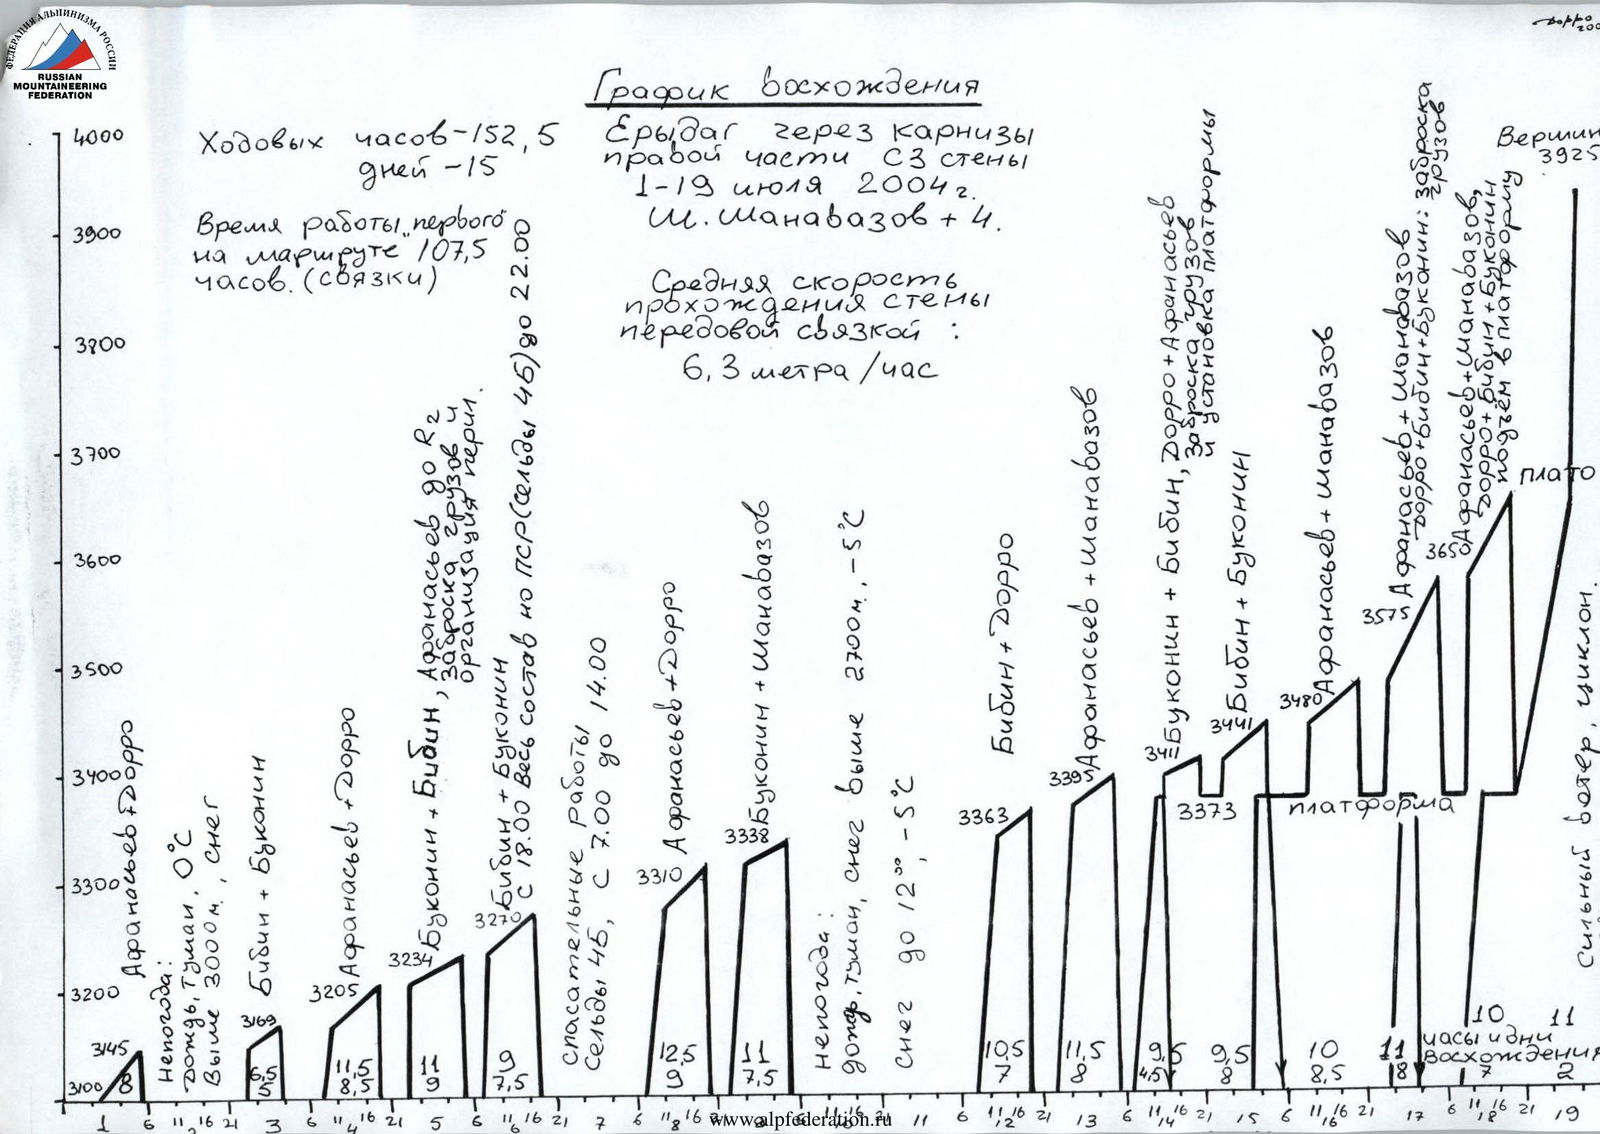 ФЕДЕРАЦИЯ АЛЬПИНИЗМА РОССИИ
RUSSIAN
MOUNTAINEERING
FEDERATION
Дорро
График восхождения
Ходовых часов-152,5
дней -15
Время работы „первого"
на маршруте 107,5
часов. (связки)
Ерыдаг через карнизы
правой части СЗ стены
1-19 июля 2004г.
Ш. Шанавазов + 4.
Средняя скорость
прохождения стены
передовой связкой :
6,3 метра/час
Вершин
3925
4000
3900
3800
3700
3600
3500
3400
3300
3200
3100
Афанасьев+Дорро
3145
8
Непогода:
дождь, туман, 0°С
Выше 3000м, снег
Бибин + Буконин
3169
6,5
5
Афанасьев+Дорро
3205
11,5
8,5
Буконин + Бибин, Афанасьев до R2
заброска грузов и
организация перил.
3234
11
9
Бибин + Буконин
с 18.00 Весь состав но ПСР(сельды 4Б) до 22.00
3270
9
7,5
Спасательные работы
Сельды 4Б, с 7.00 до 14.00
Афанасьев+Дорро
3310
12,5
9
Буконин + Шанавазов
3338
11
7,5
непогода:
дождь, туман, снег выше 2700м, -5°С
Снег до 12⁰⁰, -5°С
Бибин + Дорро
3363
10,5
7
Афанасьев + Шанавазов
3395
11,5
8
Буконин + Бибин, Дорро + Афанасьев
заброска грузов
и установка платформы
3411
9,5
4,5
3373
Бибин + Буконин
3441
9,5
8
платформа
Афанасьев + Шанавазов
3480
10
8,5
Афанасьев + Шанавазов
Дорро+Бибин+Буконин: заброска
грузов
3575
11
8
Афанасьев+Шанавазов,
Дорро+Бибин+Буконин
подъём в платформу
3650
плато
10
7
11
2
часы и дни
восхождения
Сильный ветер, циклон.
1 6 11 16 21 3 6 11 4 16 21 5 6 11 6 16 21 7 6 11 8 16 21 11 6 11 12 16 21 13 6 11 14 16 21 15 6 11 16 21 17 6 11 18 16 21 19
www.alpfederation.ru